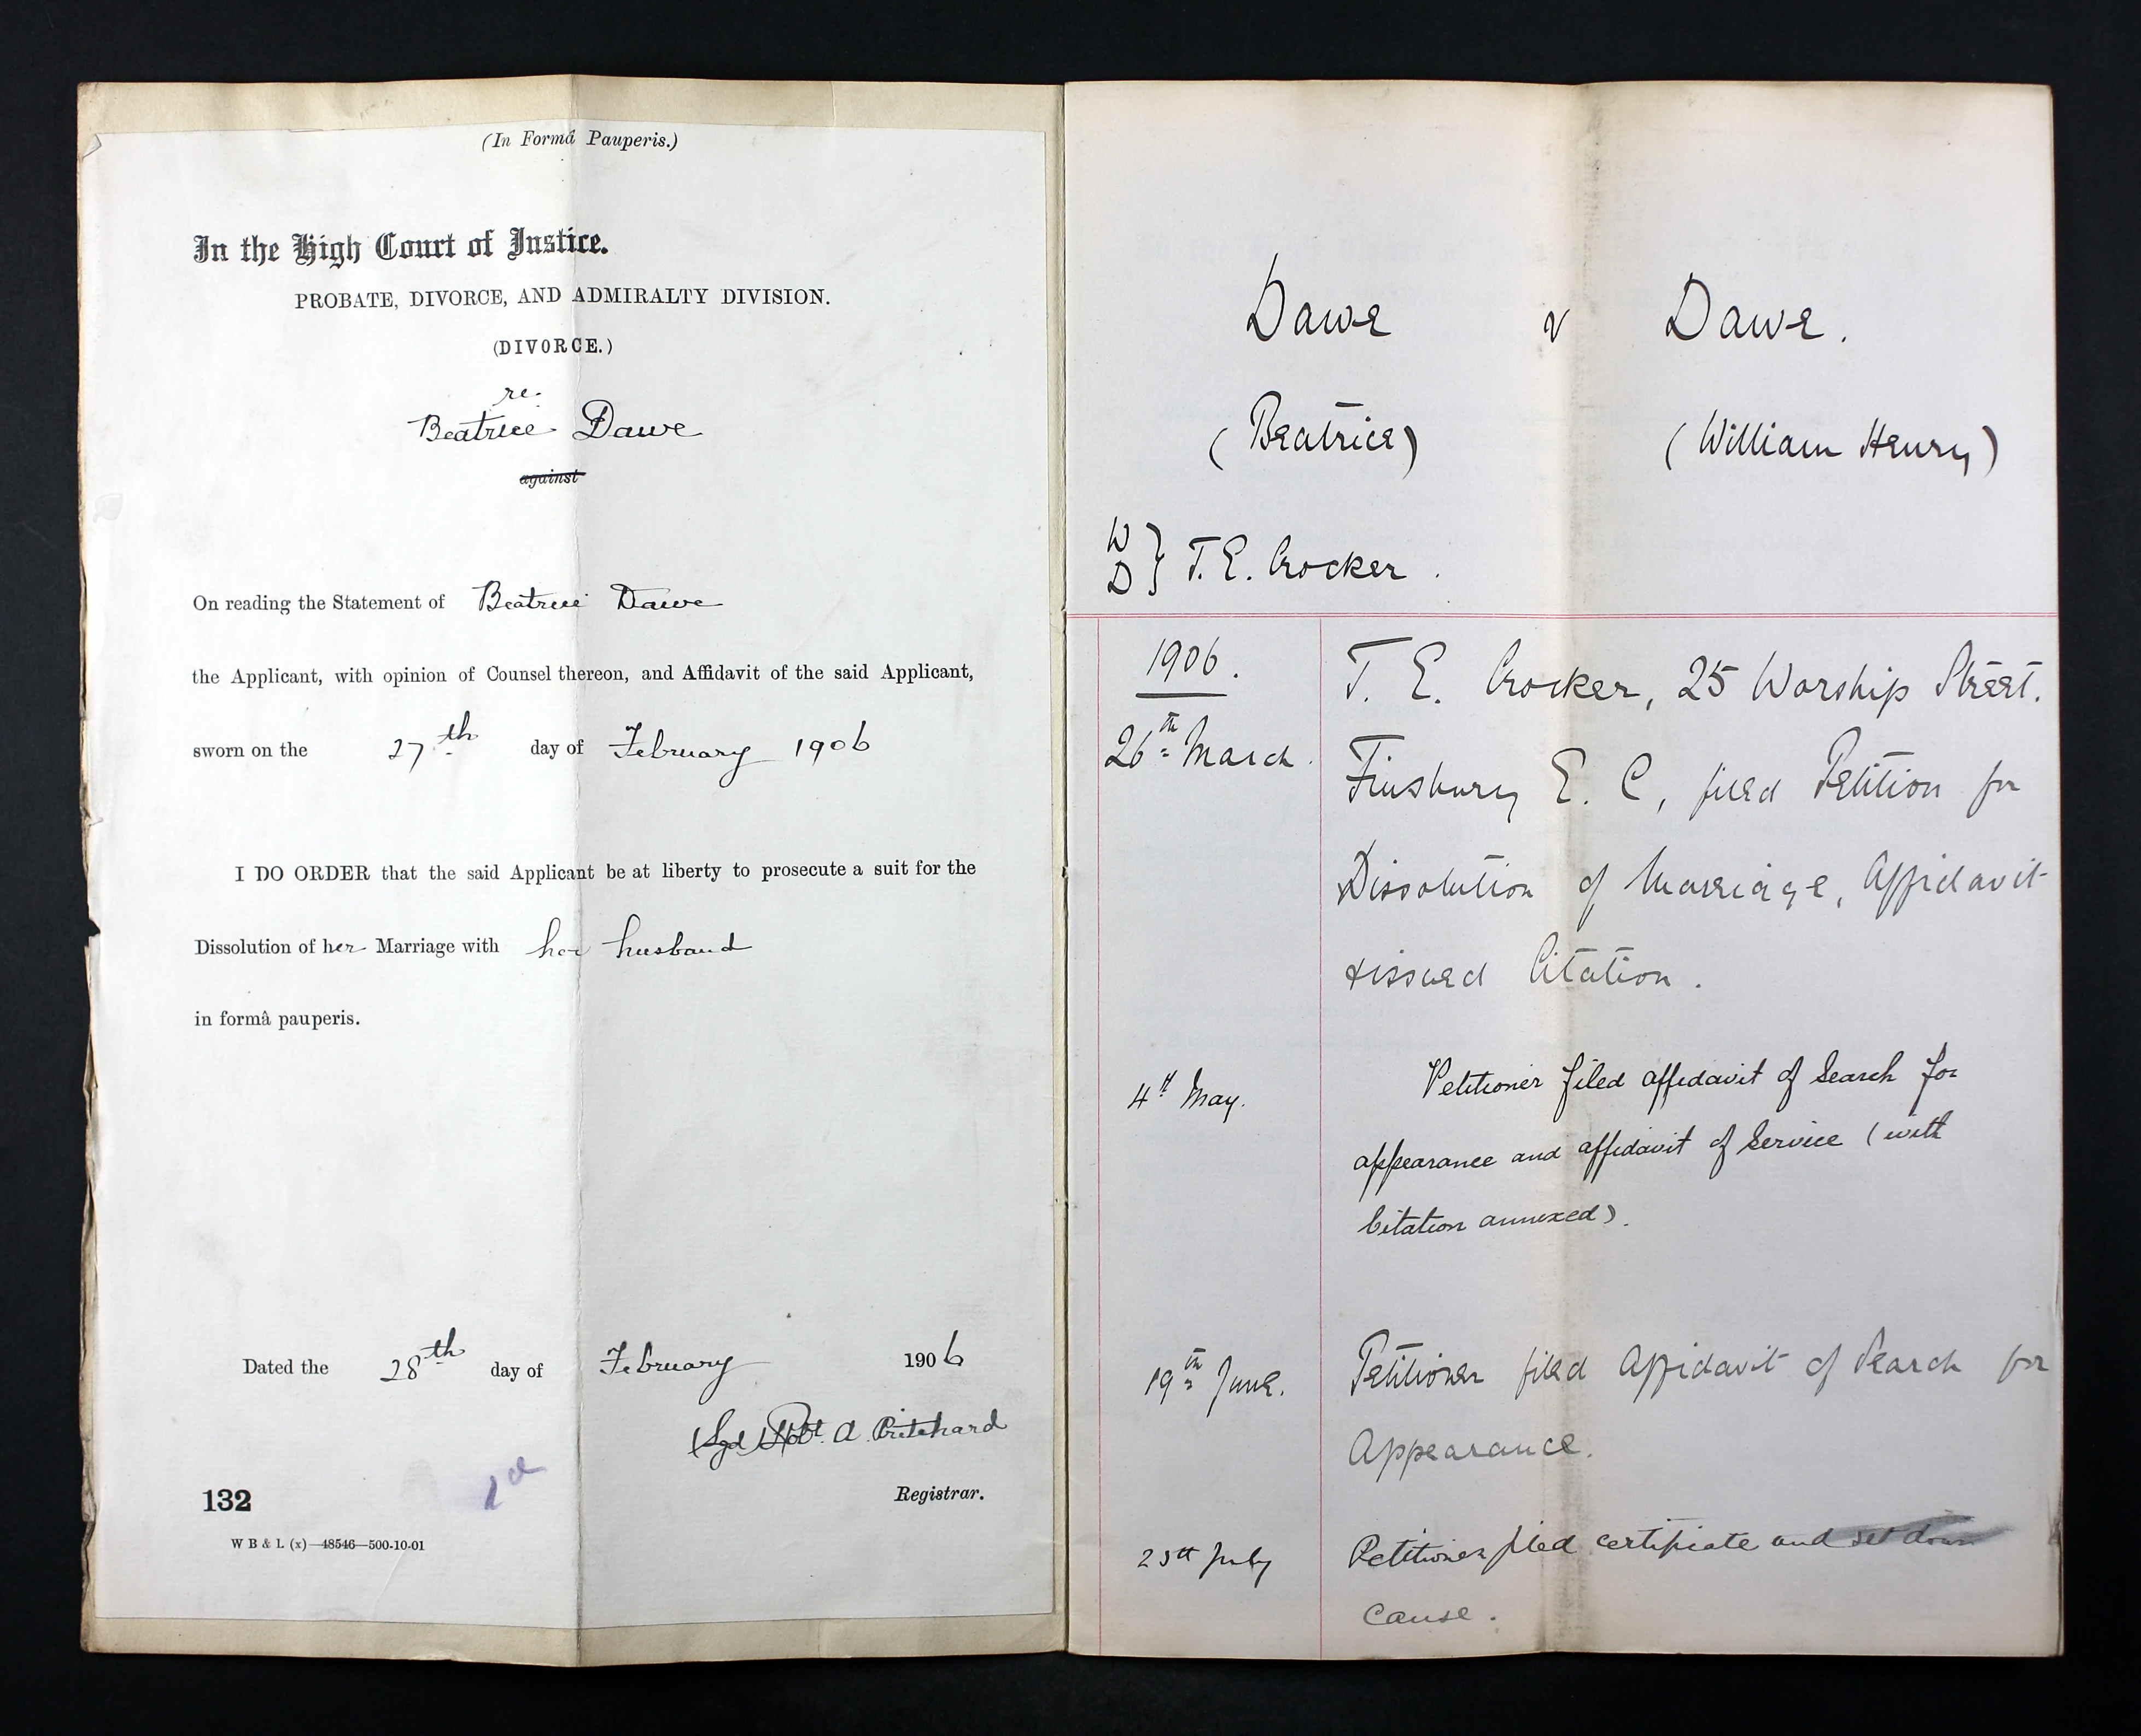 (In Formâ Pauperis.)
In the High Court of Justice.
PROBATE, DIVORCE, AND ADMIRALTY DIVISION.
(DIVORCE.)
re.
Beatrice Dawe
against
On reading the Statement of Beatrice Dawe
the Applicant, with opinion of Counsel thereon, and Affidavit of the said Applicant,
sworn on the 27th day of February 1906
I DO ORDER that the said Applicant be at liberty to prosecute a suit for the
Dissolution of her Marriage with her husband
in formâ pauperis.
Dated the 28th day of February 1906
(Sgd) Robt. A. Pritchard
Registrar.
132
W B & L (x)—48546—500-10-01
Dawe v Dawe.
(Beatrice) (William Henry)
W
D } T. E. Crocker.
1906. T. E. Crocker, 25 Worship Street.
26th March. Finsbury E. C, filed Petition for
Dissolution of Marriage, Affidavit
& issued Citation.
4th May. Petitioner filed affidavit of Search for
appearance and affidavit of Service (with
Citation annexed).
19th June. Petitioner filed Affidavit of Search for
Appearance.
25th July Petitioner filed certificate and set down
Cause.